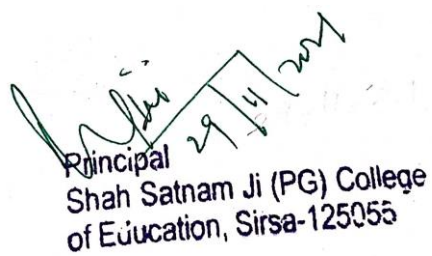 29/11/2021
Principal
Shah Satnam Ji (PG) College
of Education, Sirsa-125055